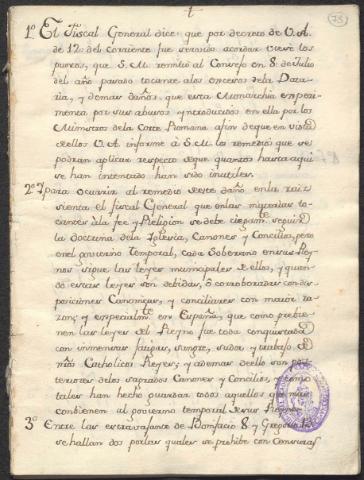 73
1º El Fiscal General dice: que por decreto de V. A.
de 12 del corriente fue servido acordar viese los
puntos, que S. M. remitió al Consejo en 8 de Julio
del año pasado tocante a los excesos de la Data-
ria, y demas daños, que esta Monarchia experi-
menta por sus abusos introducidos en ella por los
Ministros de la Corte Romana a fin de que en vista
de ellos V. A. informe a S. M. los remedios que se
podran aplicar respecto de que quantos hasta aqui
se han intentado han sido inutiles.
2º Y para ocurrir al remedio de este daño en la raiz
sienta el fiscal General que en las materias to-
cantes a la fee y Religion se debe seguir
la doctrina de la Iglesia, Canones y Concilios, pero
en el govierno temporal, cada Soberano en sus Rey-
nos sigue las leyes municipales de ellos, y quan-
do estas leyes son debidas, ò corroboradas con dis-
posiciones Canonicas, y conciliares con maior ra-
zon; y especialmte. en España, que como previe-
nen las leyes del Reyno fue toda conquistada
con inmensas fatigas, sangre, sudor y trabajo de
ntros Catholicos Reyes; y ademas de ello son pos-
teriores de los sagrados Canones y Concilios, y como
tales han hecho guardar todos aquellos que mas
combienen al govierno temporal de sus Reynos
3º Entre las extravagantes de Bonifacio 8º y Gregorio
se hallan dos por las quales se prohibe con Censuras